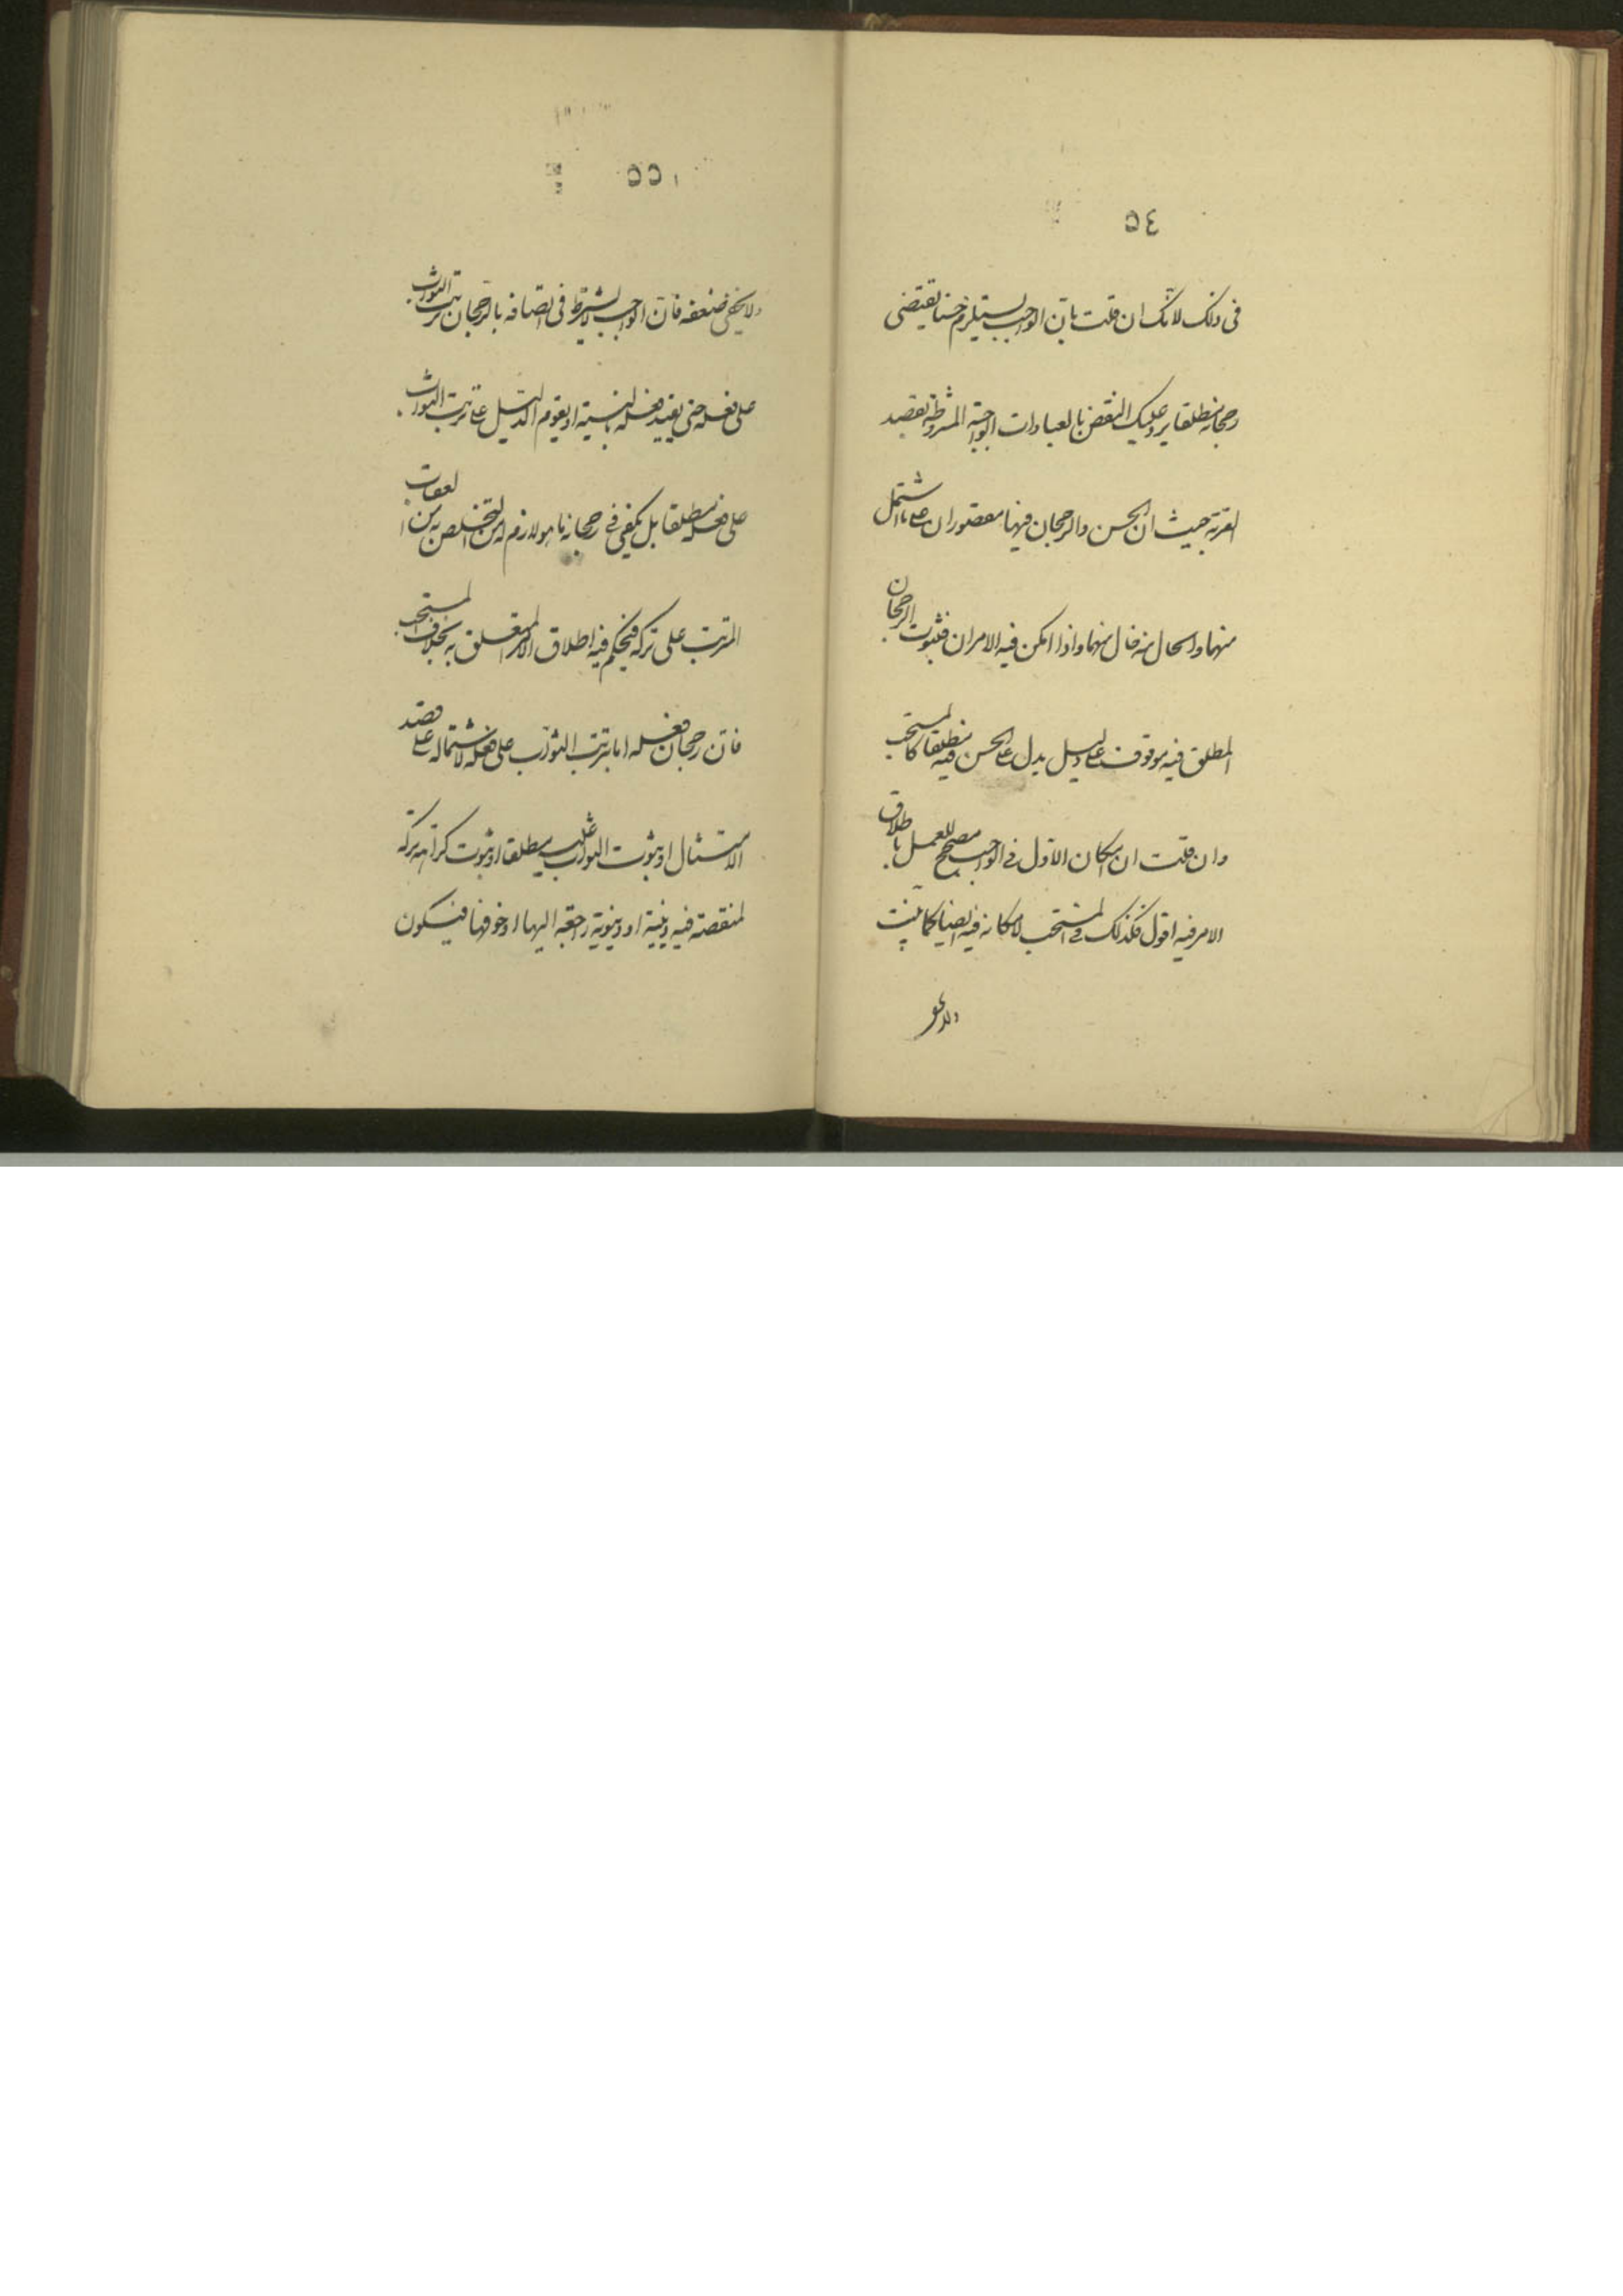 ٥٤
فى ذلك لانك ان قلت بان الواجب يستلزم حسنا يقتضى
رجحانه مطلقا يرد عليك النقض بالعبادات الواجبة المشروطة بقصد
القربة حيث ان الحسن والرجحان فيها مقصوران على ما اشتمل
منهما والحال منه خال منهما واذا امكن فيه الامران فثبوت الرجحان
المطلق فيه موقوف على دليل يدل على الحسن فيه مطلقا كالمستحب
وان قلت ان امكان الاول فى الواجب مصحح للعمل باطلاق
الامر فيه اقول فكذلك فى المستحب لامكانه فيه ايضا كما بينت
ولا يخفى
٥٥
ولا يخفى ضعفه فان الواجب لا يشترط فى اتصافه بالرجحان ترتب الثواب
على فعله حتى يقيد فعله بالنية او يقوم الدليل على ترتب الثواب
على فعله مطلقا بل يكفى فى رجحانه ما هو لازم له من التخلص به من العقاب
المترتب على تركه فيحكم فيه اطلاق الامر المتعلق به بخلاف المستحب
فان رجحان فعله اما بترتب الثواب على فعله لاشتماله على قصد
الامتثال او ثبوت الثواب عليه مطلقا او ثبوت كراهة تركه
لمنقصة فيه دينية او دنيوية راجعة اليها او خوفها فيكون